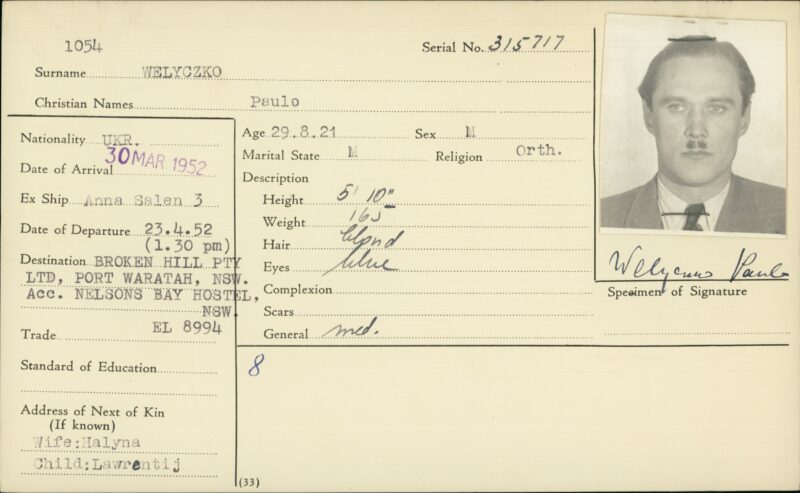 1054
Serial No. 315717
Surname WELYCZKO
Christian Names Paulo
Nationality UKR.
Date of Arrival 30 MAR 1952
Ex Ship Anna Salen 3
Date of Departure 23.4.52
(1.30 pm)
Destination BROKEN HILL PTY
LTD, PORT WARATAH, NSW.
Acc. NELSONS BAY HOSTEL,
NSW.
Trade EL 8994
Standard of Education
Address of Next of Kin
(If known)
Wife:Halyna
Child:Lawrentij
Age 29.8.21 Sex M
Marital State M Religion Orth.
Description
Height 5' 10"
Weight 165
Hair blond
Eyes blue
Complexion
Scars
General med.
8
(33)
Paulo
Specimen of Signature